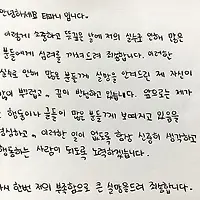 안녕하세요 티파니 입니다.
이렇게 소중하고 뜻깊은 날에 저의 실수로 인해 많은
분들에게 심려를 끼쳐드려 죄송합니다. 이러한
실수로 인해 많은 분들께 실망을 안겨드린 제 자신이
많이 부끄럽고 깊이 반성하고 있습니다. 앞으로는 제가
행동이나 글들이 많은 분들께 보여지고 있음을
명심하고 이러한 일이 없도록 항상 신중히 생각하고
행동하는 사람이 되도록 노력하겠습니다.
다시 한번 저의 부족함으로 큰 실망을드려 죄송합니다.